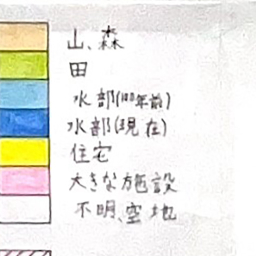 山、森
田
水部(100年前)
水部(現在)
住宅
大きな施設
不明、空地